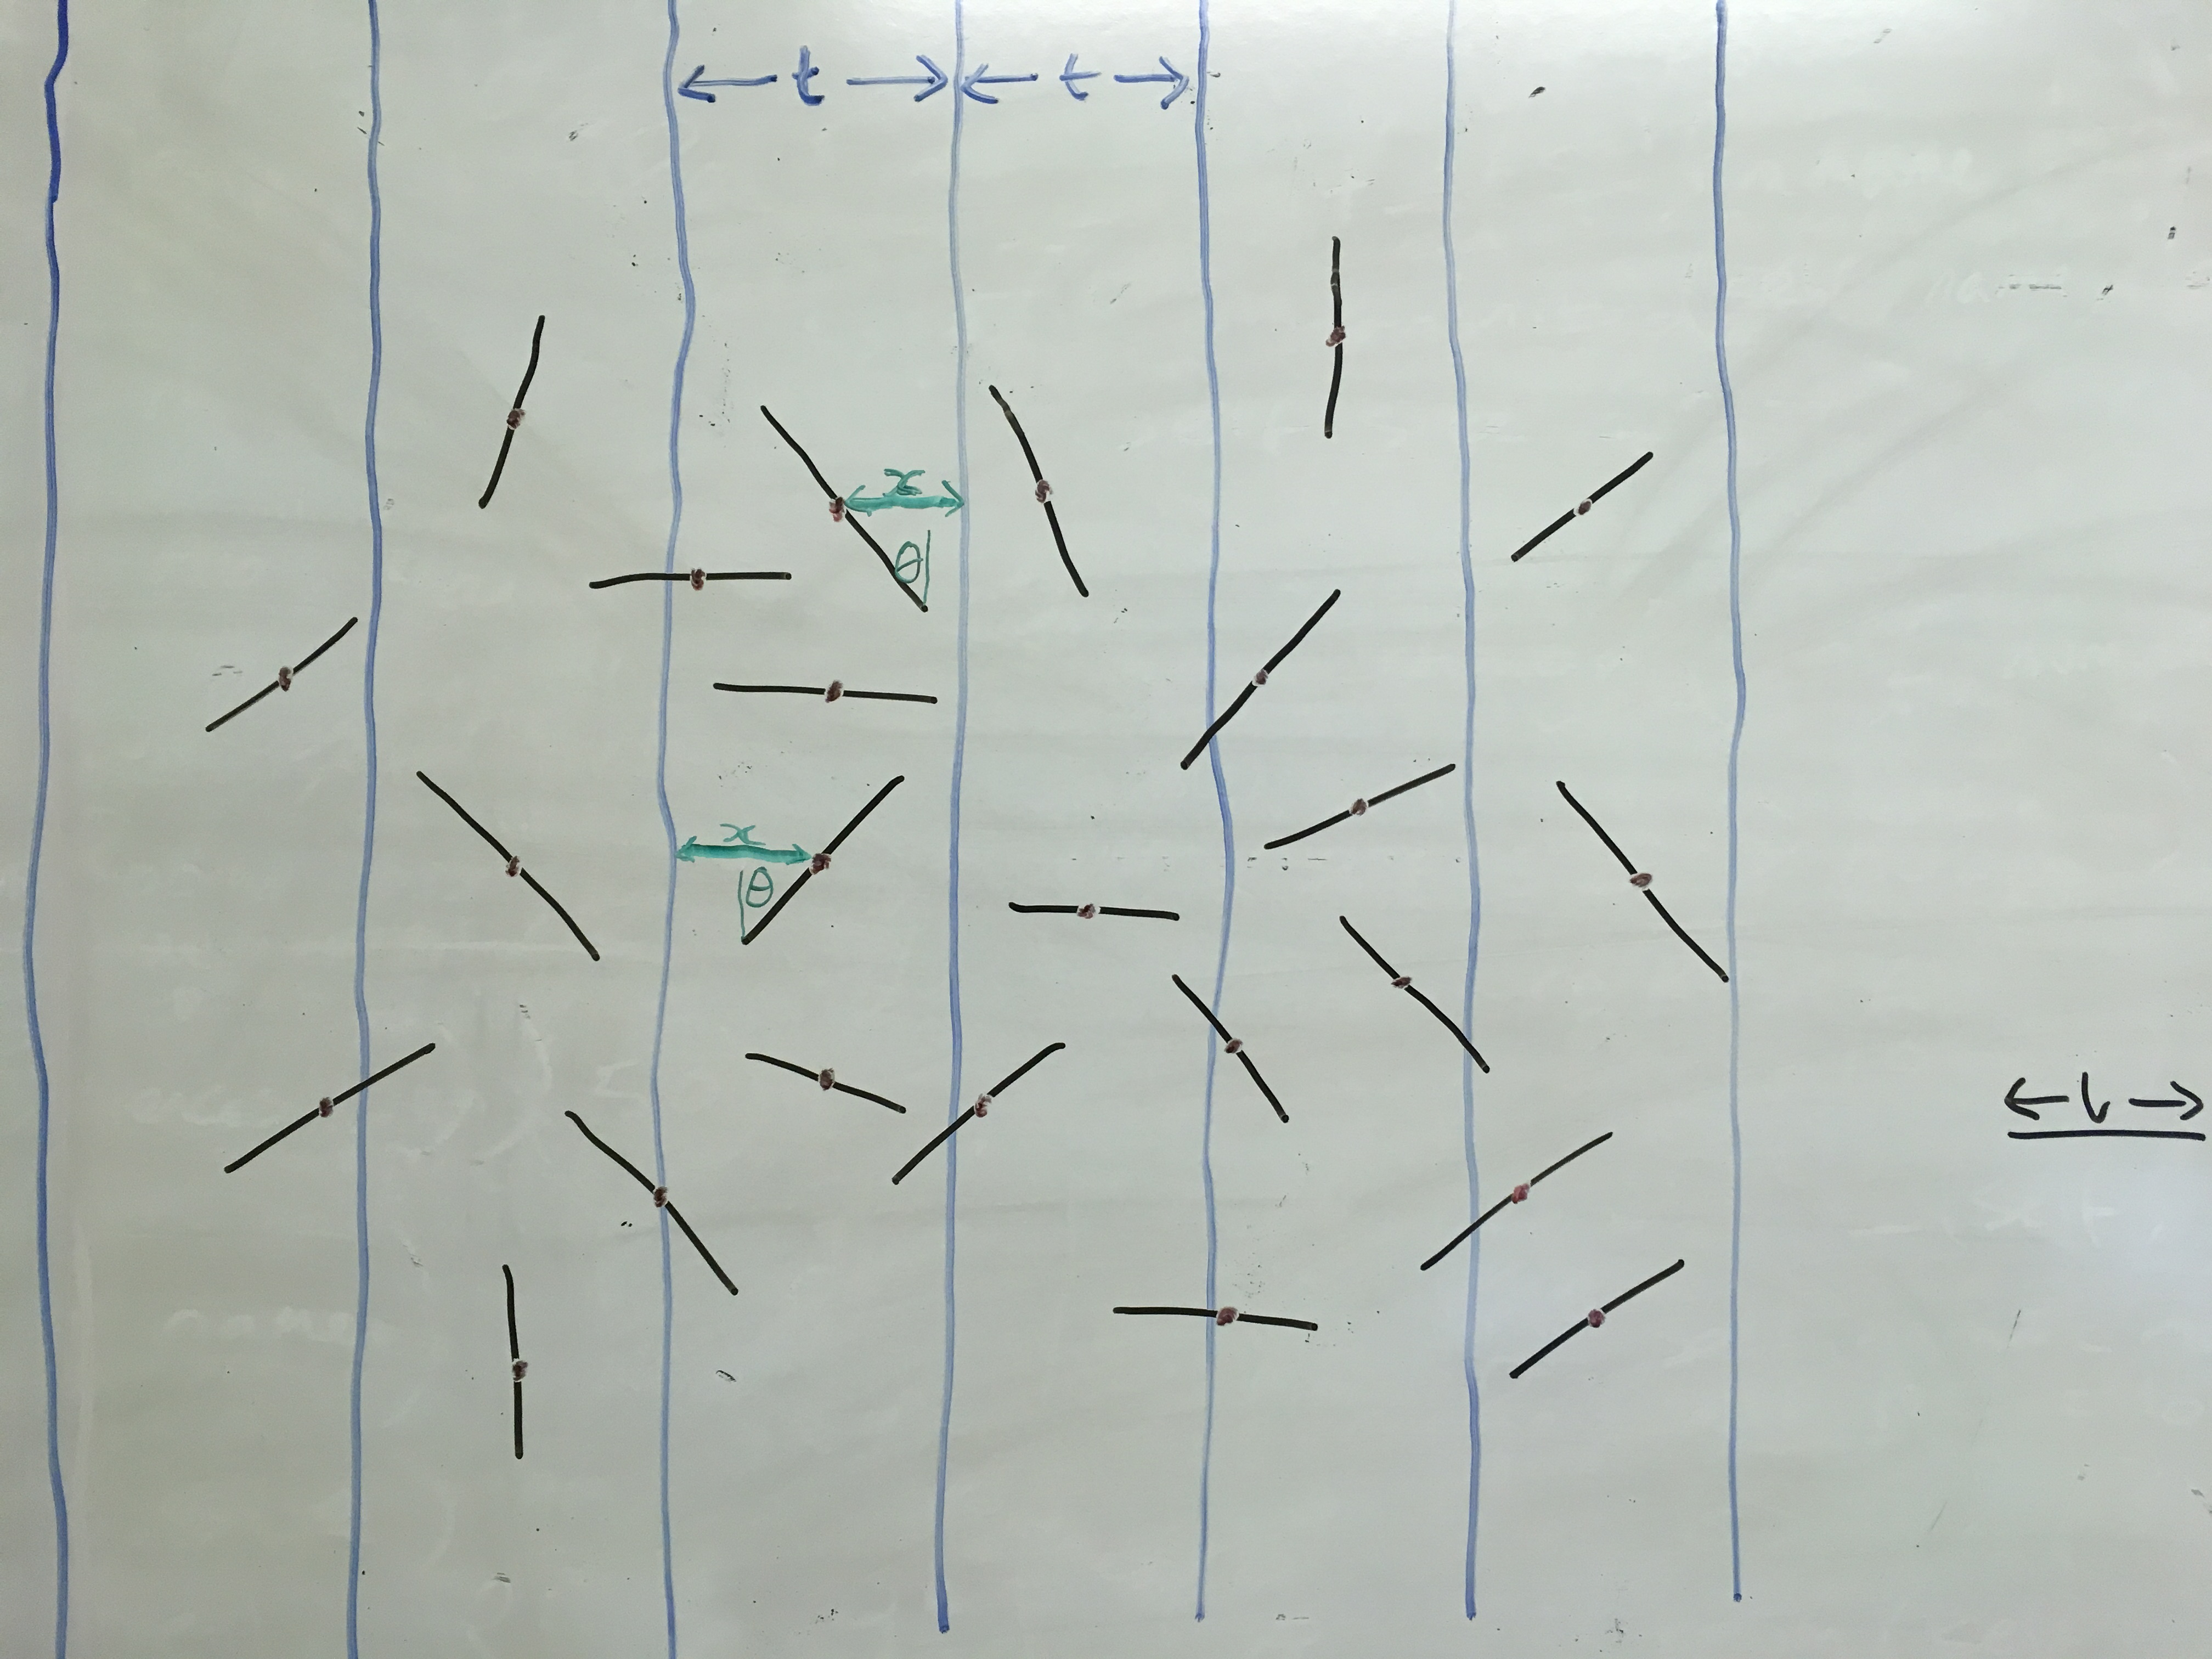 t t
x
θ
x
θ
l